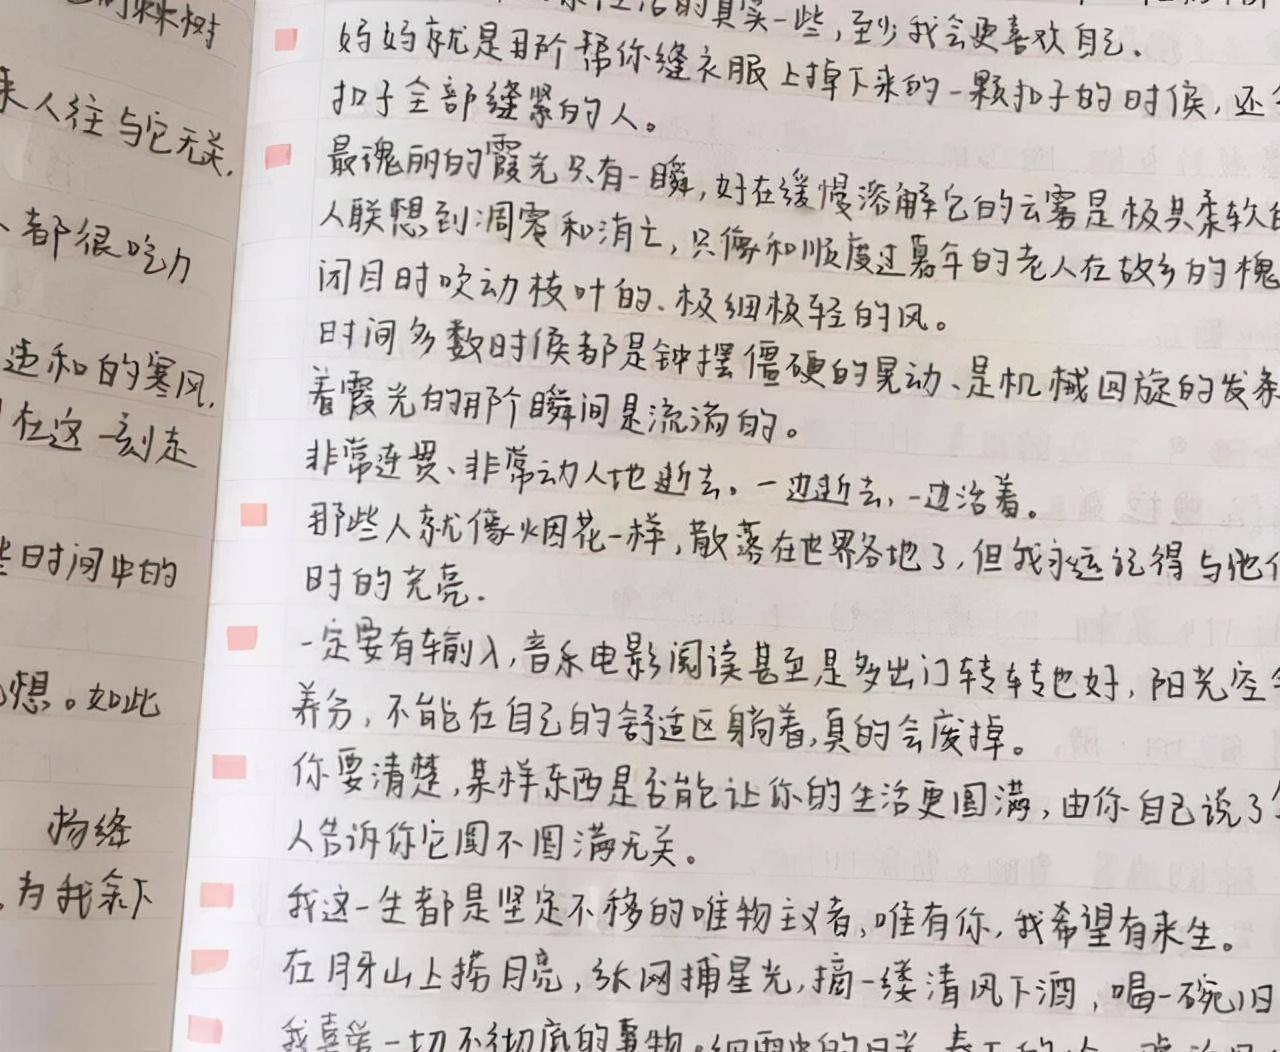 树
来人往与它无关,
都很吃力
造和的寒风,
在这一刻走
些时间中的
想。如此
杨绛
为我余下
活的真实一些,至少我会更喜欢自己.
妈妈就是那个帮你缝衣服上掉下来的一颗扣子的时候,还
扣子全部缝紧的人。
最瑰丽的霞光只有一瞬,好在缓慢溶解它的云雾是极其柔软
人联想到凋零和消亡,只像和顺度过暮年的老人在故乡的槐
闭目时吹动枝叶的、极细极轻的风。
时间多数时候都是钟摆僵硬的晃动、是机械回旋的发条
着霞光的那个瞬间是流淌的。
非常连贯、非常动人地逝去。一边逝去,一边活着。
那些人就像烟花一样,散落在世界各地了,但我永远记得与他
时的光亮.
一定要有输入,音乐电影阅读甚至是多出门转转也好,阳光空
养分,不能在自己的舒适区躺着,真的会废掉。
你要清楚,某样东西是否能让你的生活更圆满,由你自己说了
人告诉你它圆不圆满无关。
我这一生都是坚定不移的唯物主义者,唯有你,我希望有来生。
在月牙山上捞月亮,张网捕星光,摘一缕清风下酒,喝一碗旧
我喜爱一切不彻底的事物。细雨中的日光,春天的